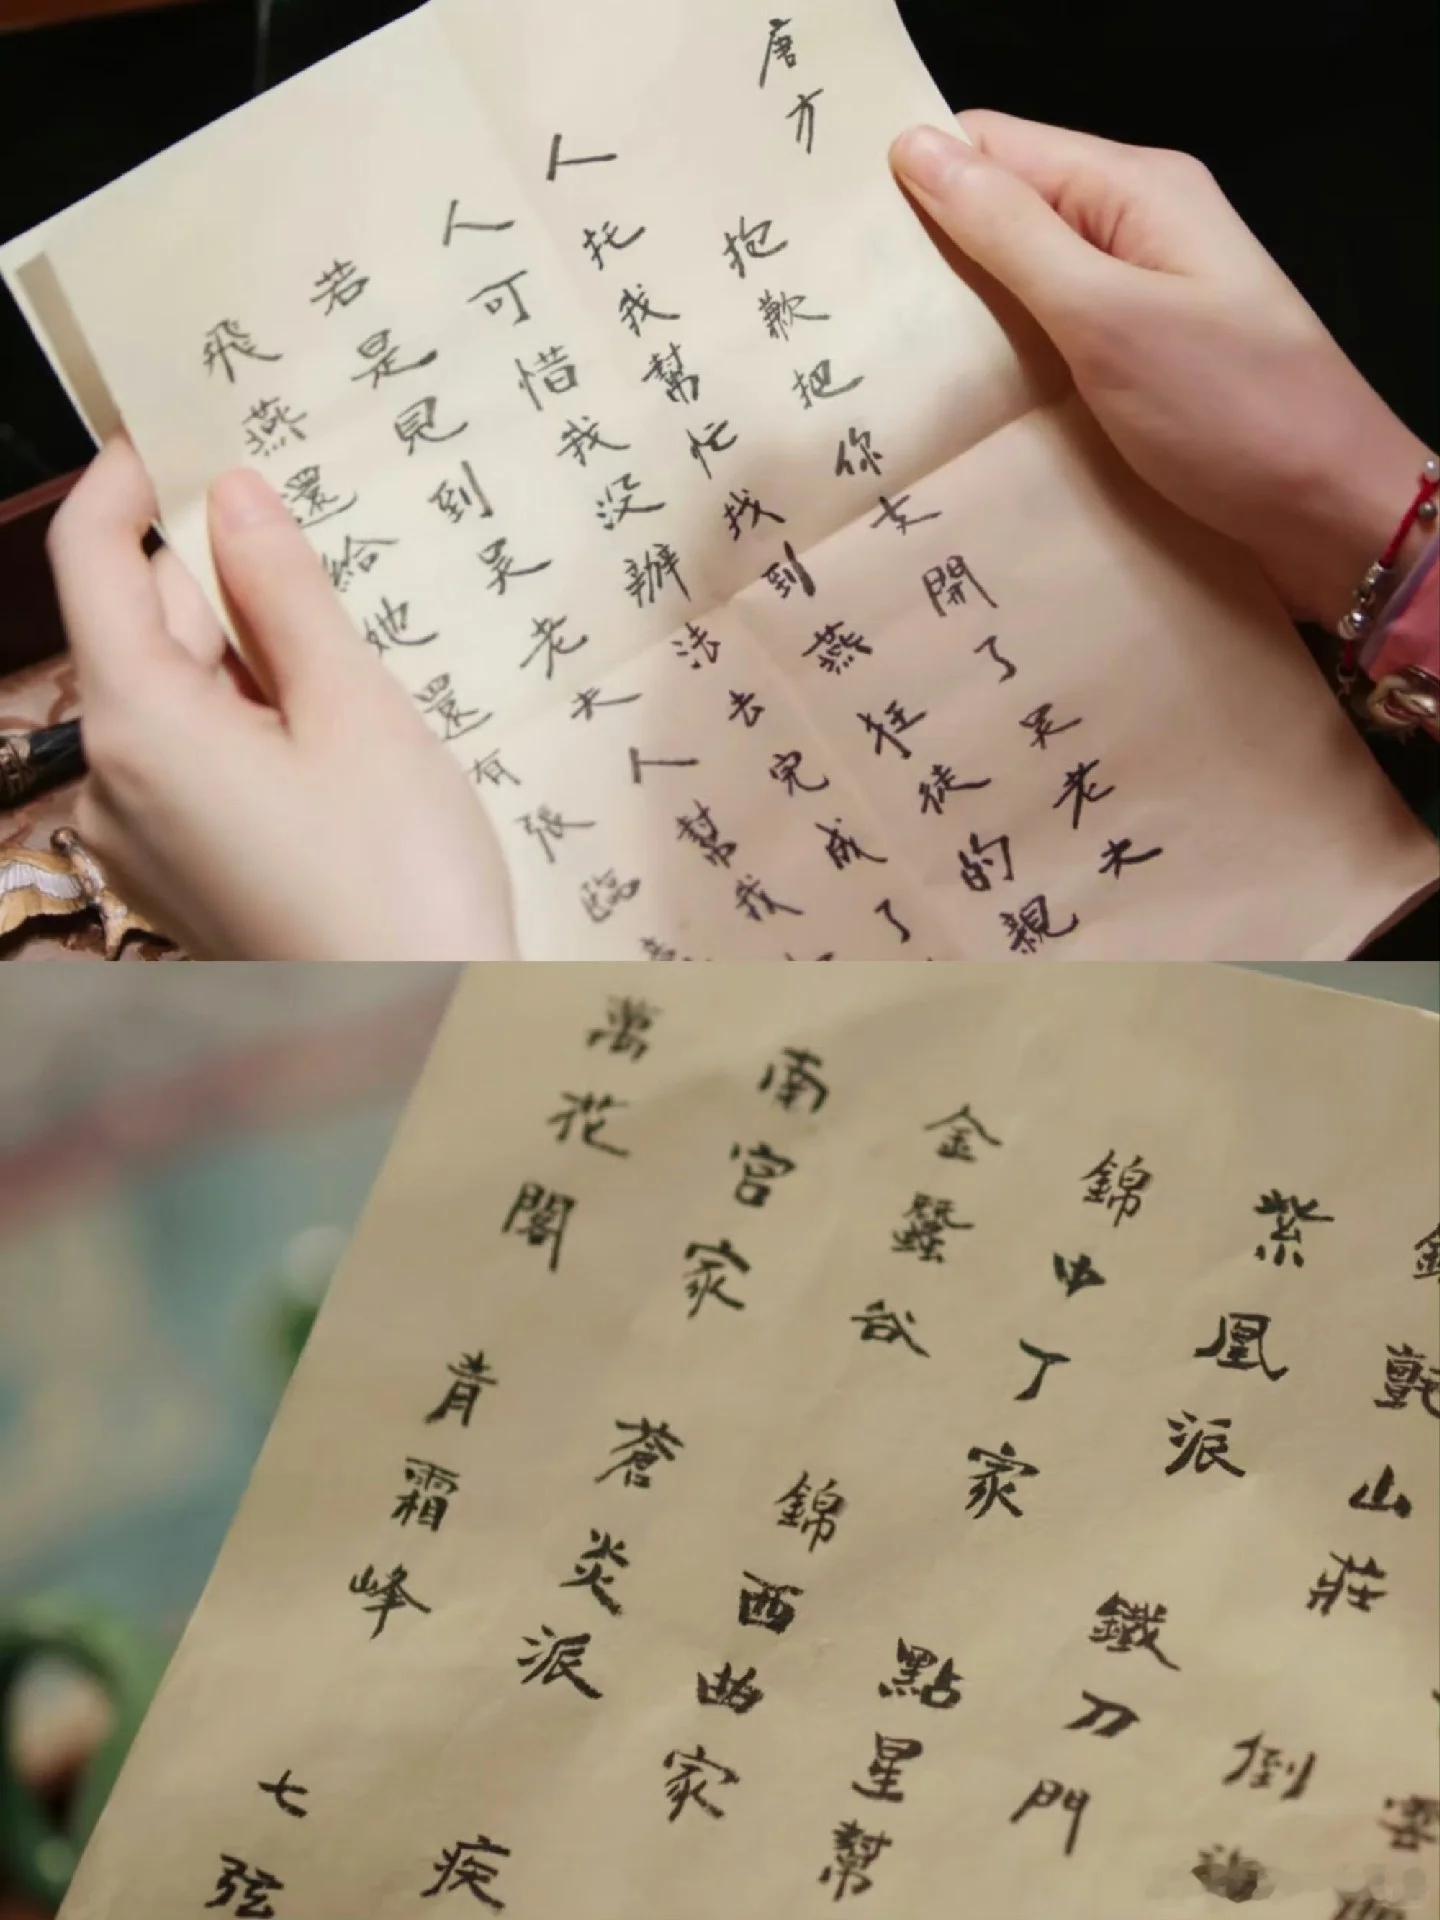 唐方
抱歉把你支開了吴老夫
人托我幫忙找到燕狂徒的親
人可惜我没辦法去完成了
若是見到吴老夫人幫我
飛燕還給她還有張臨
氈山莊 倒
紫凰派 鐵刀門
錦中丁家 點星幫
金蠶 錦西曲家
南宫家 蒼炎派 疾
萬花閣 青霜峰 七弦